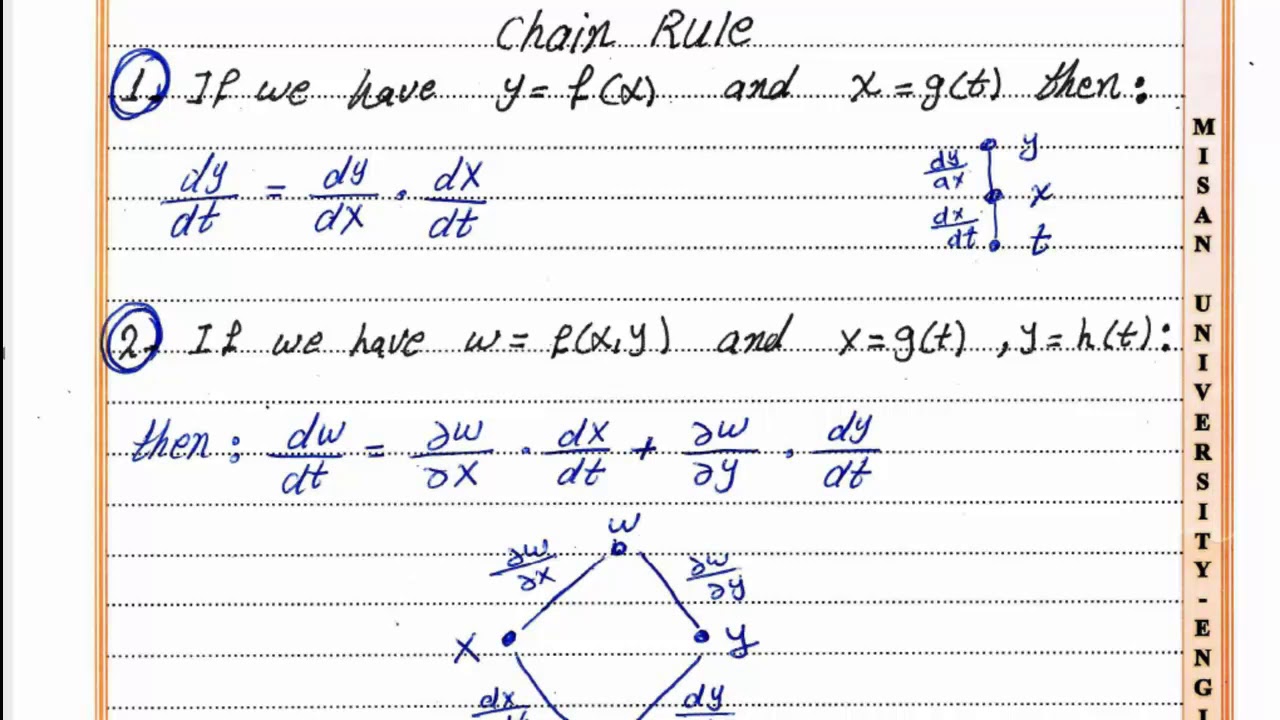 Chain Rule
1. If we have y = f(x) and x = g(t) then:
dy/dt = dy/dx . dx/dt
y
dy/dx
x
dx/dt
t
2. If we have w = f(x,y) and x = g(t), y = h(t):
then: dw/dt = ∂w/∂x . dx/dt + ∂w/∂y . dy/dt
w
∂w/∂x ∂w/∂y
x y
dx/dt dy
MISAN UNIVERSITY-ENGI